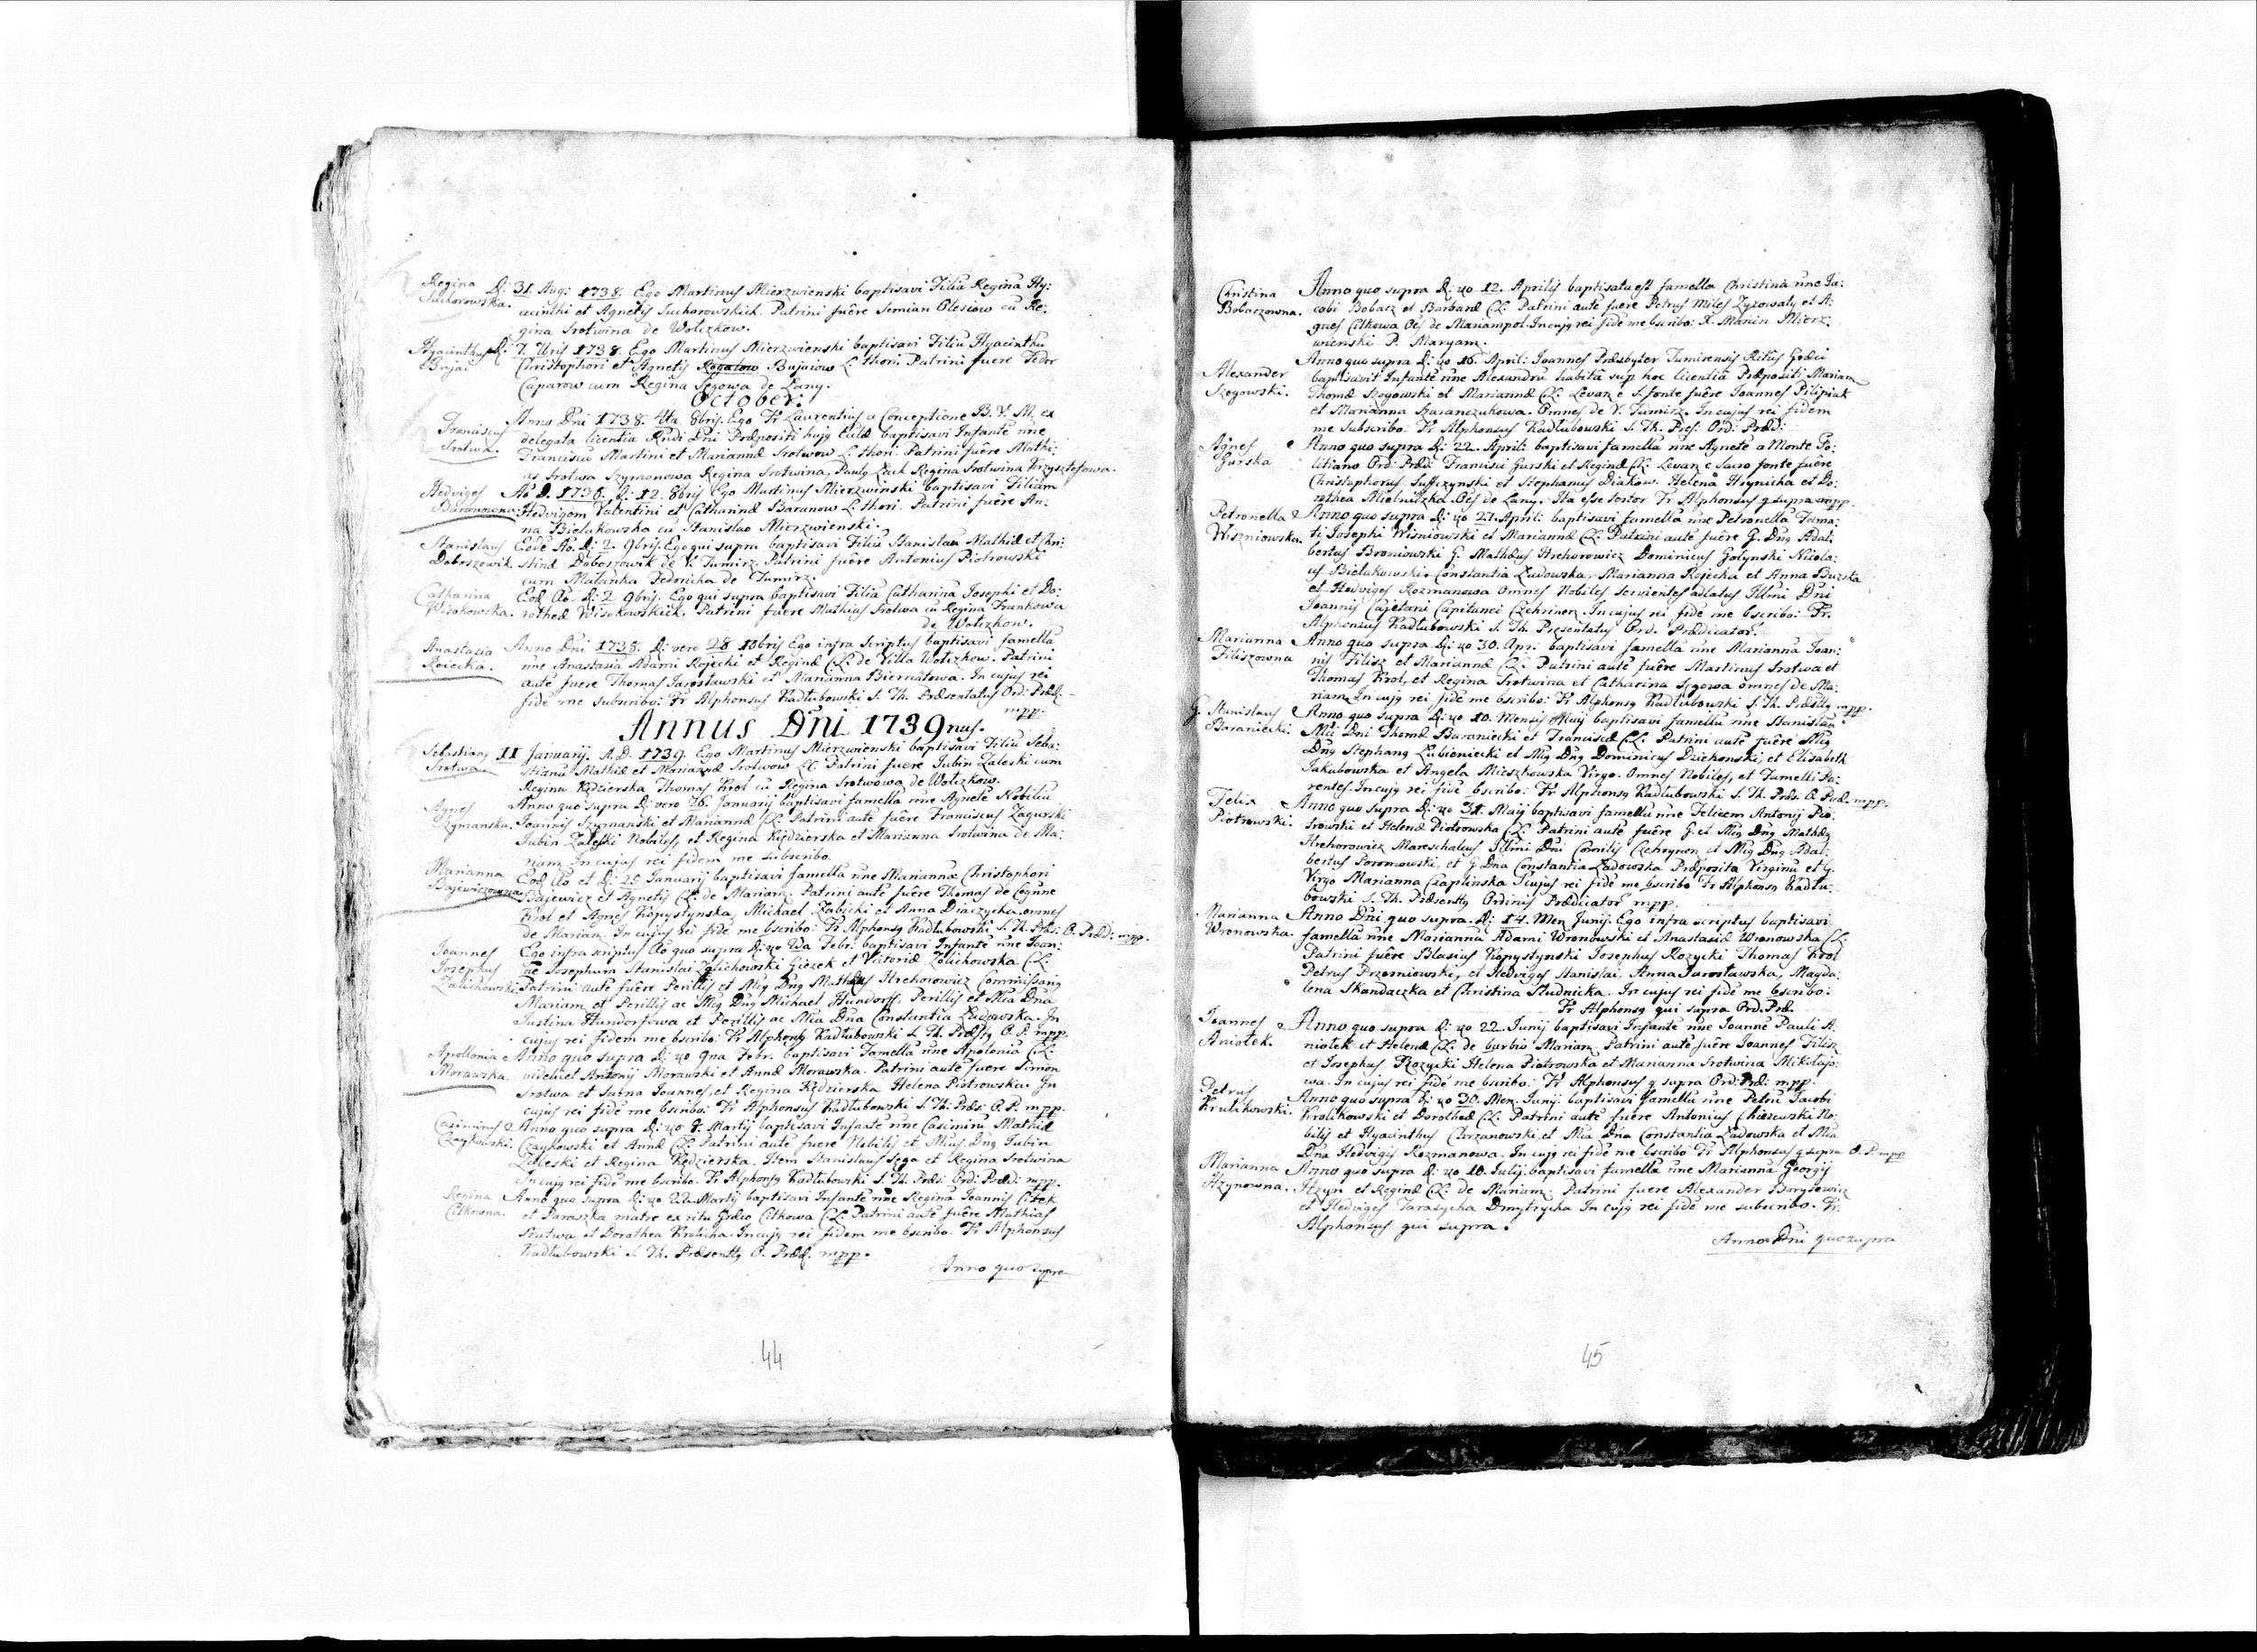 Regina Suchorowska.
D: 31. Aug: 1738. Ego Martinus Mierzwienski baptisavi Filia Regina Hy:
acinthi et Agnetis Suchorowskich. Patrini fuêre Semian Olesiow cu Re:
gina Srotwina de Wolczkow.
Hyacinthus Buja.
D: 7. 7bris 1738. Ego Martinus Mierzwienski baptisavi Filiu Hyacinthu
Christophori et Agnetis Rogalow Bujaiow L: thori. Patrini fuere Fedor
Caparow cum Regina Segowa de Lany.
October.
Franciscus Srotwa.
Anno Dni 1738. 4ta 8bris. Ego Fr Laurentius a Conceptione B. V. M. ex
delegata licentia Rndi Dni Præpositi hujg Eclæ baptisavi Infante nne
Franciscu Martini et Mariannæ Srotwow L: thori. Patrini fuêre Mathi:
as Srotwa Szymonowa Regina Srotwina, Pauly Lach Regina Srotwina Krzysztofowa.
Hedviges Baranowna.
Ao D. 1738. D: 12. 8bris Ego Martinus Mierzwinski baptisavi Filiam
Hedvigem Valentini et Catharinæ Baranow L: thori. Patrini fuêre An:
na Bielakowska cu Stanislao Mierzwienski.
Stanislaus Doboszowik.
Eode Ao. D: 2. 9bris. Ego qui supra baptisavi Filiu Stanislau Mathiæ et Chri:
stinæ Doboszowik de V. Tumirz. Patrini fuêre Antonius Piotrowski
cum Malanka Fedoricha de Tumirz.
Catharina Wisakowska.
Eod Ao. D: 2 9bris. Ego qui supra baptisavi Filia Catharina Josephi et Do:
rotheæ Wisakowskich. Patrini fuere Mathias Srotwa cu Regina Frankowa
de Wolczkow.
Anastasia Roiecka.
Anno Dni 1738. D: vero 28 10bris Ego infra scriptus baptisavi famella
nne Anastasia Adami Rojecki et Reginæ CL: de Villa Wolczkow. Patrini
aute fuere Thomas Jaroslawski et Marianna Biernatowa. In cujus rei
fide me subscribo: Fr Alphonsus Kadlubowski S. Th. Præsentatus Ord: Præd:
mpp.
Annus Dni 1739nus.
Sebastiang Srotwa.
11 Januarij. A. D. 1739. Ego Martinus Mierzwienski baptisavi Filiu Seba:
stianu Mathiæ et Mariannæ Srotwow LC: Patrini fuere Jubin Zaleski cum
Regina Kędzierska Thomas Krol cu Regina Srotwowa de Wolczkow.
Agnes Szymanska.
Anno quo supra D: vero 16. Januarij baptisavi famella nne Agnete Nobiliu
Joannis Szymanski et Mariannæ CL: Patrini aute fuere Franciscus Zagurski
Jubin Zaleski Nobiles, et Regina Kiędzierska et Marianna Srotwina de Ma:
riam. In cujus rei fidem me subscribo.
Marianna Bajewiczowna.
Eod Ao et D: 25 Januarij baptisavi famella nne Mariannæ Christophori
Bajewicz et Agnetis CL: de Mariam: Patrini aute fuêre Thomas de Cognne
Krol et Agnes Kopystynska, Michael Zabicki et Anna Diaczycha omnes
de Mariam. In cujus rei fide me bscribo: Fr Alphonsg Kadlubowski S. Th. Præs: O. Præd: mpp.
Joannes Josephus Zalichowski.
Ego infra scriptus Ao quo supra D: vo 2da Febr: baptisavi Infante nne Joan:
ne Josephum Stanislai Zalichowski Giezek et Victoriæ Zolichowska CL:
Patrini aute fuêre Perillis et Mig Dng Mathæus Hrehorowicz Commissarig
Mariam et Perillis ac Mig Dng Michael Hundorff, Perillis et Mia Dna
Justina Hundorfowa et Perillis ac Mia Dna Constantia Ladowska. In
cujus rei fidem me bscribo: Fr Alphonsg Kadlubowski S. Th. Præstg O. P. mpp.
Apollonia Morawska.
Anno quo supra D: vo 9na Febr. baptisavi Famella nne Apolonia CL:
videlicet Antonij Morawski et Annæ Morawska. Patrini aute fuere Simon
Srotwa et Subna Joannes, et Regina Kędzierska Helena Piotrowska. In
cujus rei fide me bscribo: Fr Alphonsus Kadlubowski S. Th: Præs: O. P. mpp.
Casimirus Czaykowski.
Anno quo supra D: vo 8. Martij baptisavi Infante nne Casimiru Mathiæ
Czaykowski et Annæ CL: Patrini aute fuere Nobilis et Mius Dng Jubin
Zaleski et Regina Kędzierska. Item Stanislaus Sega et Regina Srotwina
In cujg rei fide me bscribo. Fr Alphonsg Kadlubowski S. Th. Præs: Ord: Præd: mpp.
Regina Citkowna.
Anno quo supra D: vo 22. Martij baptisavi Infante nne Regina Joannis Citek
et Paraszka matre ex ritu Græco Citkowa CL: Patrini aute fuêre Mathias
Srutwa et Dorothea Krolicha. In cujg rei fidem me bscribo. Fr Alphonsus
Kadlubowski S. Th. Præsenttg O. Præd: mpp.
Anno quo supra
44
Christina Bobaczowna.
Anno quo supra D: vo 12. Aprilis baptisata est famella Christina nne Ja:
cobi Bobacz et Barbaræ CL: Patrini aute fuere Petrus Miles Zyzowaly et A:
gnes Citkowa Oes de Mariampol. In cujg rei fide me bscribo: X. Marcin Mierz:
wienski P. Maryam.
Alexander Szogowski.
Anno quo supra D: vo 16. April: Joannes Præsbyter Tumirensis Ritus Græci
baptisavit Infante nne Alexandru habitâ sup hoc licentiâ Præpositi Mariam
Thomæ Szogowski et Mariannæ CL: Levan: e S. fonte fuêre Joannes Pilipiuk
et Marianna Baranczukowa. Omnes de V. Tumirz. In cujus rei fidem
me subscribo. Fr Alphonsus Kadlubowski S. Th. Pres: Ord: Præd:
Agnes Gurska
Anno quo supra D: 22. April: baptisavi famella nne Agnete a Monte Po:
litiano Ord: Præd: Francisci Gurski et Reginæ CL: Levan: e Sacro fonte fuêre
Christophorus Suffczynski et Stephanus Diakow. Helena Hrynicha et Do:
rothea Mielniczka Oes de Lany. Ita esse testor Fr Alphonsus q supra mpp.
Petronella Wiszniowska.
Anno quo supra D: vo 27. April: baptisavi famella nne Petronella Toma:
ti Josephi Wisniowski et Mariannæ CL: Patrini aute fuêre G. Dng Adal:
bertus Broniowski G. Mathæus Hrehorowicz Dominicus Golynski Nicola:
us Bielakowski. Constantia Ladowska, Marianna Rojecka et Anna Buzska
et Hedviges Rozmanowa Omnes Nobiles servientes adlatus Illmi Dni
Joannis Cajetani Capitanei Czehrinen. In cujus rei fide me bscribo: Fr.
Alphonsus Kadlubowski S. Th. Præsentatus Ord. Prædicator.
Marianna Filiszowna
Anno quo supra D: vo 30. Apr: baptisavi famella nne Marianna Joan:
nis Filisz et Mariannæ CL: Patrini aute fuêre Martinus Srotwa et
Thomas Krol, et Regina Srotwina et Catharina Segowa omnes de Ma:
riam. In cujg rei fide me bscribo: Fr Alphonsg Kadlubowski S. Th. Præsttg mpp.
G. Stanislaus Baraniecki.
Anno quo supra D: vo 10. Mensis Maij baptisavi famellu nne Stanislau
Mci Dni Thomæ Baraniecki et Franciscæ CL. Patrini aute fuêre Mig
Dng Stephang Lubieniecki et Mig Dng Dominicus Dziekonski, et Elisabeth
Jakubowska et Angela Mieszkowska Virgo. Omnes Nobiles, et Famelli Pa:
rentes. In cujg rei fide bscribo: Fr Alphonsg Kadlubowski S. Th. Præs: O. Præd: mpp.
Felix Piotrowski.
Anno quo supra D: vo 31. Maij baptisavi famellu nne Felicem Antonij Pio:
trowski et Helenæ Piotrowska CL: Patrini aute fuêre G. et Mig Dng Mathæg
Hrehorowicz Mareschalcus Illmi Dni Comitis Czehrynen: et Mig Dng Adal:
bertus Poromowski, et G Dna Constantia Ladowska Præposita Virginu et G.
Virgo Marianna Czaplinska. I cujus rei fide me bscribo Fr Alphonsg Kadlu:
bowski S. Th. Præsenttg Ordinis Prædicator mpp.
Marianna Wronowska.
Anno Dni quo supra. D: 14. Men Junij. Ego infra scriptus baptisavi
famella nne Marianna Adami Wronowski et Anastasiæ Wronowska CL:
Patrini fuêre Blasius Kopystynski Josephus Rozycki Thomas Krol
Petrus Przemiowski, et Hedviges Stanislai, Anna Jaroslawska, Magda:
lena Skandaczka et Christina Studnicka. In cujus rei fide me bscribo:
Fr Alphonsg qui supra Ord. Præd.
Joannes Aniolek.
Anno quo supra D: vo 22. Junij baptisavi Infante nne Joanne Pauli A:
niolek et Helenæ CL: de burbio Mariam: Patrini aute fuêre Joannes Filisz
et Josephus Rozycki Helena Piotrowska et Marianna Srotwina Mikolajo:
wa. In cujus rei fide me bscribo: Fr Alphonsus q supra Ord: Præd: mpp.
Petrus Krulikowski.
Anno quo supra D: vo 30. Men. Junij baptisavi famellu nne Petru Jacobi
Krolikowski et Dorotheæ CL: Patrini aute fuêre Antonius Chizewski No:
bilis et Hyacinthus Chrzanowski, et Mia Dna Constantia Ladowska et Mia
Dna Hedvigis Rozmanowa. In cujg rei fide me bscribo Fr Alphonsus q supra O. P. mpp
Marianna Hzynowna.
Anno quo supra D: vo 10. Julij baptisavi famella nne Marianna Georgij
Hzyn et Reginæ CL: de Mariam: Patrini fuere Alexander Borysowicz
et Hedviges Tarasycha Dmytrycha In cujg rei fide me subscribo. Fr.
Alphonsus qui supra.
Anno Dni quo supra
45